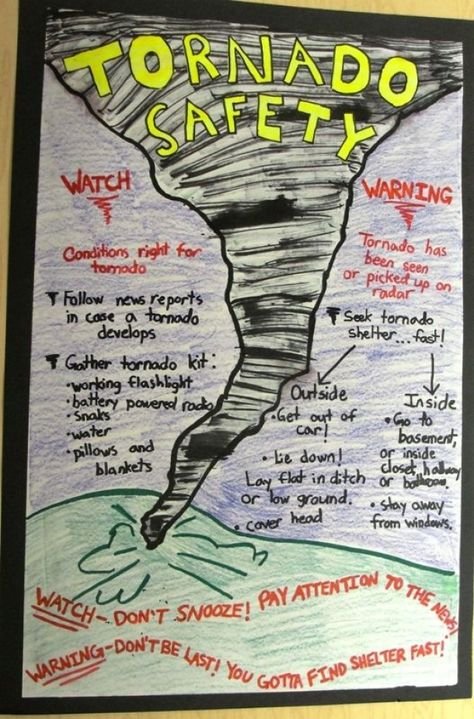 TORNADO
SAFETY
WATCH
Conditions right for
tornado
Follow news reports
in case a tornado
develops
Gather tornado kit:
• working flashlight
• battery powered radio
• snaks
• water
• pillows and
blankets
WARNING
Tornado has
been seen
or picked up on
radar
Seek tornado
shelter...fast!
Outside
• Get out of
car!
• Lie down!
Lay flat in ditch
or low ground.
• cover head
Inside
• Go to
basement,
or inside
closet, hallway
or bathroom.
• stay away
from windows.
WATCH- DON'T SNOOZE! PAY ATTENTION TO THE NEWS!
WARNING-DON'T BE LAST! YOU GOTTA FIND SHELTER FAST!